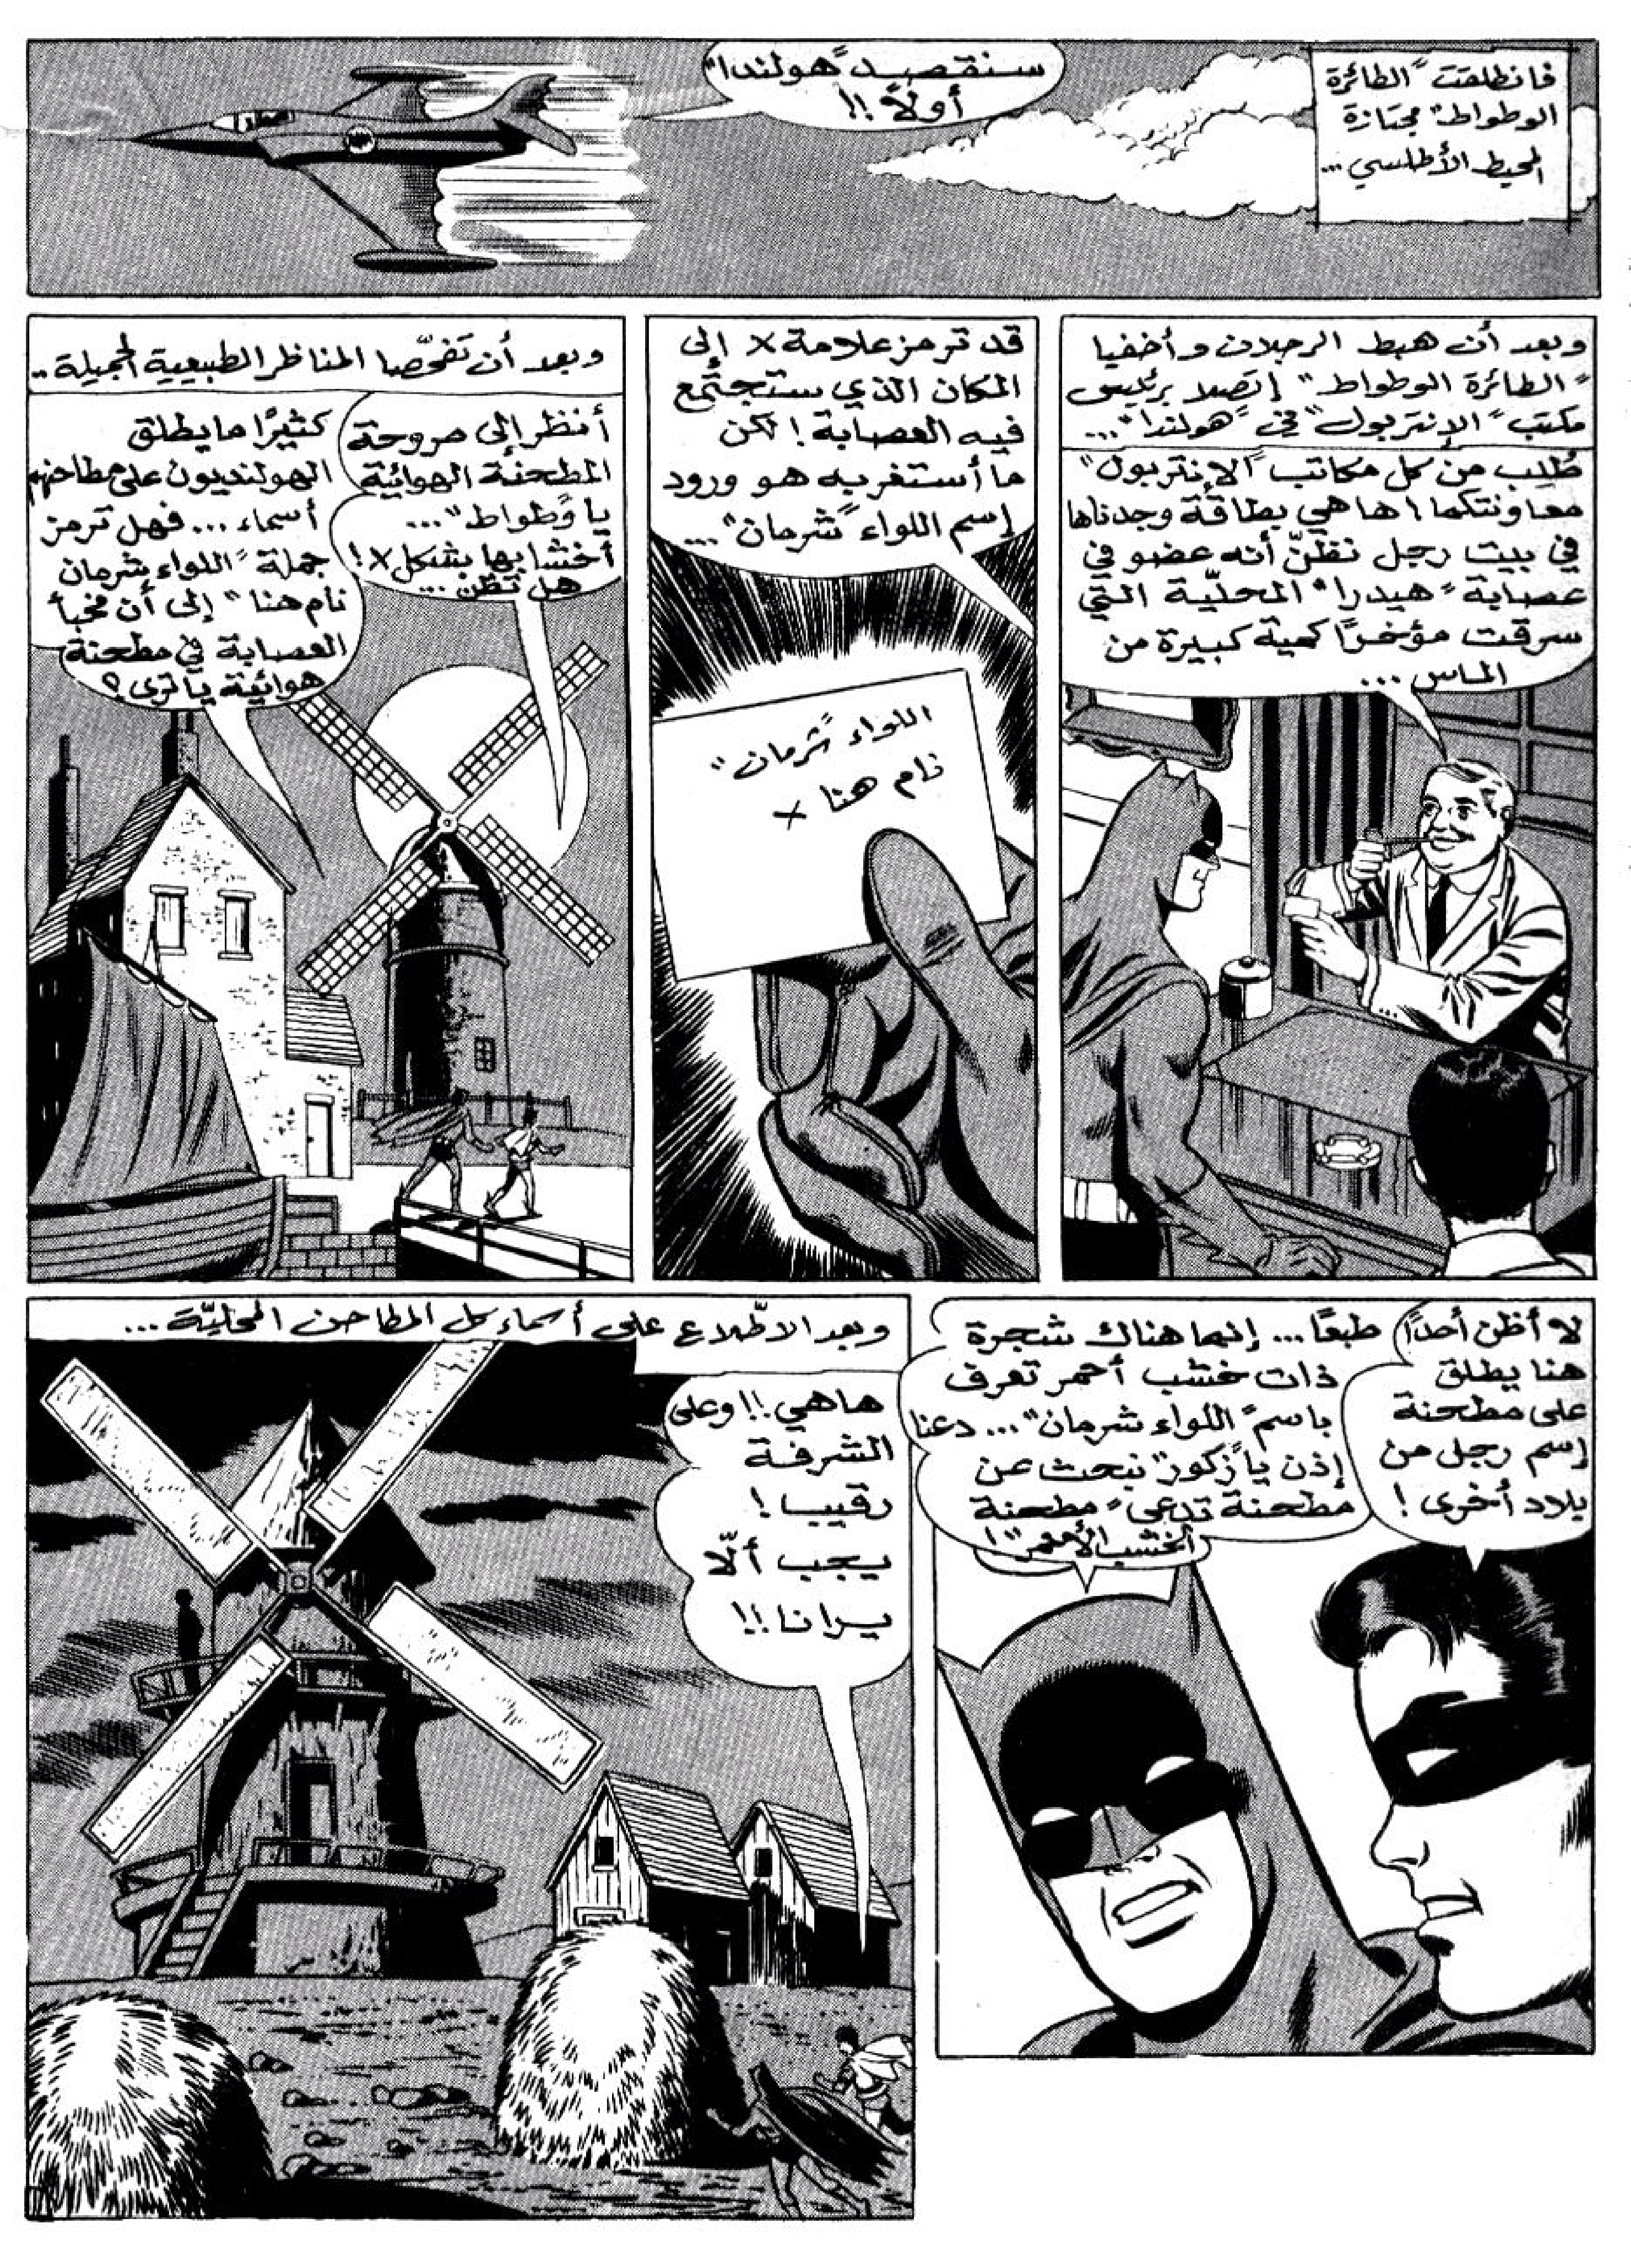 فانطلقت "الطائرة
الوطواط" مجتازة
المحيط الأطلسي...
سنقصد "هولندا"
أولاً!!
وبعد أن هبط الرجلان وأخفيا
"الطائرة الوطواط" إتصلا برئيس
مكتب "الإنتربول" في "هولندا"...
طُلِب من كل مكاتب "الإنتربول"
معاونتكما! ها هي بطاقة وجدناها
في بيت رجل نظنّ أنه عضو في
عصابة "هيدرا" المحليّة التي
سرقت مؤخرًا كمية كبيرة من
الماس...
قد ترمز علامة X إلى
المكان الذي ستجتمع
فيه العصابة! لكن
ما أستغربه هو ورود
إسم اللواء "شرمان"...
اللواء "شرمان"
نام هنا X
وبعد أن تفحّصا المناظر الطبيعية الجميلة..
أنظر إلى مروحة
المطحنة الهوائية
يا "وطواط"...
أخشابها بشكل X!
هل تظن...
كثيرًا ما يطلق
الهولنديون على مطاحنهم
أسماء... فهل ترمز
جملة "اللواء شرمان
نام هنا" إلى أن مخبأ
العصابة في مطحنة
هوائية يا ترى؟
لا أظن أحدًا
هنا يطلق
على مطحنة
إسم رجل من
بلاد أخرى!
طبعًا... إنما هناك شجرة
ذات خشب أحمر تعرف
باسم "اللواء شرمان"... دعنا
إذن يا "زكور" نبحث عن
مطحنة تدعى "مطحنة
الخشب الأحمر"!
وبعد الاطّلاع على أسماء كل المطاحن المحليّة...
ها هي!! وعلى
الشرفة
رقيب!
يجب ألّا
يرانا!!